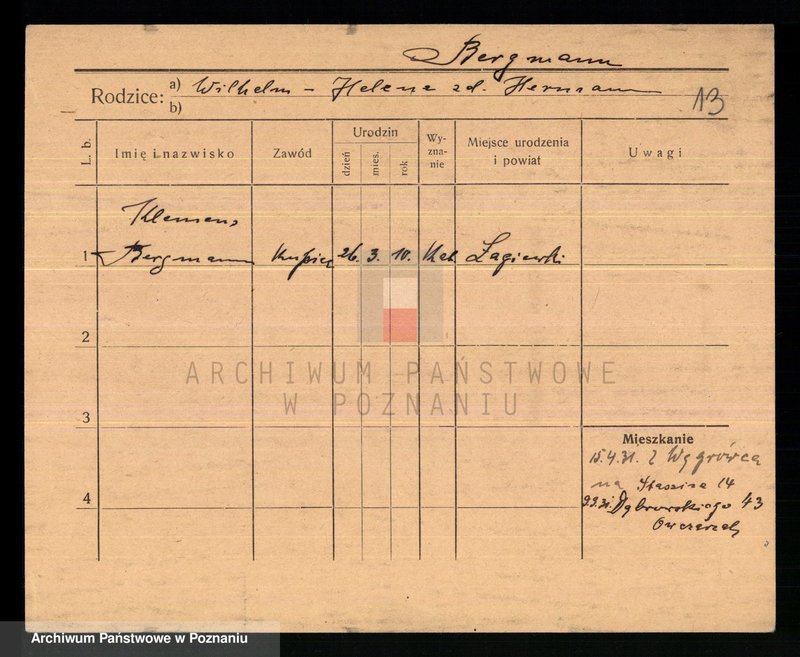 Bergmann
Rodzice: a) Wilhelm - Helene zd. Hermann
b)
13
L. b.
Imię i nazwisko
Zawód
Urodzin
dzień
mies.
rok
Wy-
zna-
nie
Miejsce urodzenia
i powiat
Uwagi
Klemens
1 Bergmann Kupiec 26. 3. 10. Kat. Łagiewki
2
ARCHIWUM PAŃSTWOWE
W POZNANIU
3
Mieszkanie
15.4.31. z Wągrówca
na Staszica 14
4
Dąbrowskiego 43
Archiwum Państwowe w Poznaniu